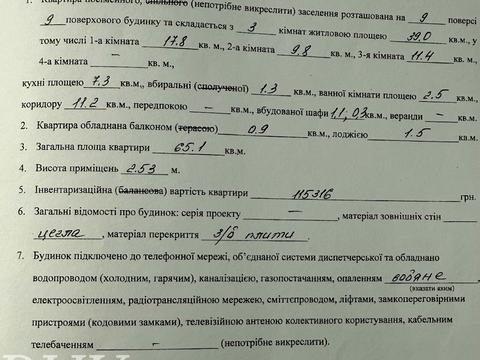 1. Квартира посімейного, спільного (непотрібне викреслити) заселення розташована на 9 поверсі
9 поверхового будинку та складається з 3 кімнат житловою площею 39,0 кв.м., у
тому числі 1-а кімната 17.8 кв. м., 2-а кімната 9.8 кв. м., 3-я кімната 11.4 кв. м.,
4-а кімната – кв. м.,
кухні площею 7.3 кв.м., вбиральні (сполученої) 1.3 кв.м., ванної кімнати площею 2.5 кв.м.,
коридору 11.2 кв.м., передпокою – кв.м., вбудованої шафи 1.1, 0,3 кв.м., веранди – кв.м.
2. Квартира обладнана балконом (терасою) 0.9 кв.м., лоджією 1.5 кв.м.
3. Загальна площа квартири 65.1 кв.м.
4. Висота приміщень 2.53 м.
5. Інвентаризаційна (балансова) вартість квартири 115316 грн.
6. Загальні відомості про будинок: серія проекту –, матеріал зовнішніх стін
цегла, матеріал перекриття з/б плити.
7. Будинок підключено до телефонної мережі, об'єднаної системи диспетчерської та обладнано
водопроводом (холодним, гарячим), каналізацією, газопостачанням, опаленням водяне,
(вказати яким)
електроосвітленням, радіотрансляційною мережею, сміттєпроводом, ліфтами, замкопереговірними
пристроями (кодовими замками), телевізійною антеною колективного користування, кабельним
телебаченням - (непотрібне викреслити).